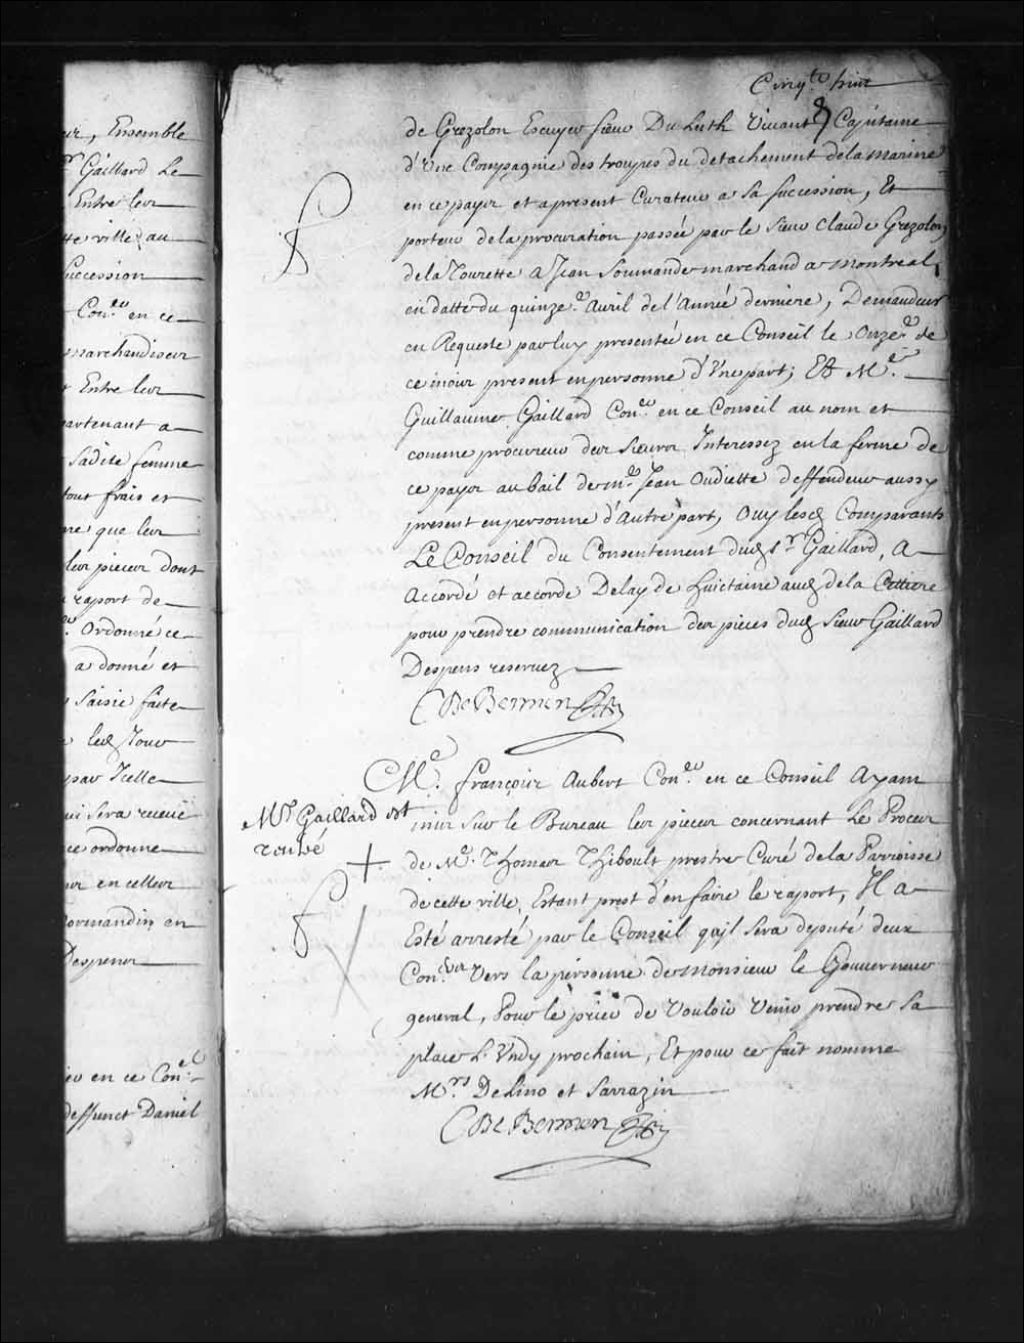 ur, Ensemble
r Gaillard Le
Entre les
tte ville au
succession
Con.er en ce
marchandises
Entre les
artenant a
Sadite femme
tout frais et
ne que les
les pieces dont
raport de
Ordonné ce
a donné et
saisie faite
lesd Jour
par Icelle
ui sera receue
ce ordonne
en celles
ormandin en
Despens
en ce Con.el
deffunct Daniel
Cinq.te huit
de Grezolon Escuyer sieur Du Luth Vivant Capitaine
d'Une Compagnie des troupes du detachement de la marine
en ce payis et apresent Curateur a sa succession, Et
porteur de la procuration passée par le Sieur Claude Grezolon
de la Tourette a Jean Soumande marchand a Montreal,
en datte du quinze.e Avril de l'Année derniere, Demandeur
en Requeste par luy presentée en ce Conseil le Onze.e de
ce mois present en personne d'Une part; Et M.e
Guillaume Gaillard Con.er en ce Conseil au nom et
comme procureur des Sieurs Interessez en la ferme de
ce payis au bail de m.e Jean Oudiette deffendeur aussy
present en personne d'Autre part, Ouy lesd Comparants
Le Conseil du Consentement dud s.r Gaillard, A
Accordé et accorde Delay de huictaine aud de la
pour prendre communication des pieces dud Sieur Gaillard
Despens reservez
C De Bermen
M.e françois Aubert Con.er en ce Conseil Ayant
mis sur le Bureau les pieces concernant Le Proces
de M.e Thomas Thiboult prestre Curé de la Parroisse
de cette ville, Estant prest d'en faire le raport, Il a
Esté arresté par le Conseil qu'jl sera deputé deux
Con.ers Vers la personne de Monsieur le Gouverneur
general, Pour le prier de Vouloir Venir prendre sa
place Lundy prochain, Et pour ce fait nomme
M.rs De Lino et Sarrazin
C De Bermen
Mr Gaillard est